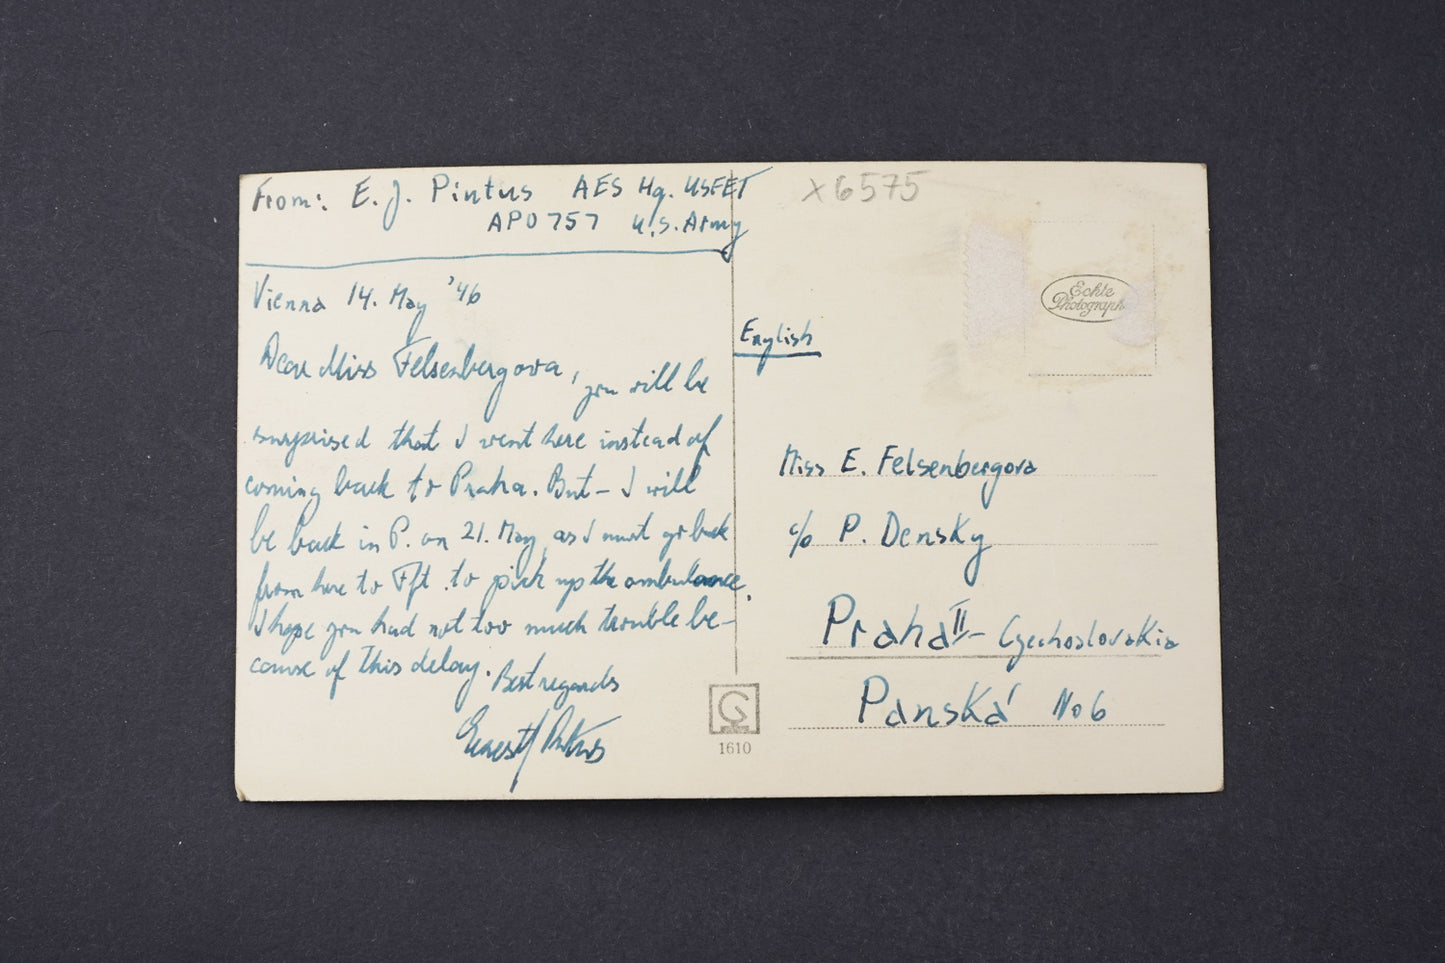 From: E. J. Pintus AES Hq. USFET
APO 757 U.S. Army
Vienna 14. May '46
Dear Miss Felsenbergova, you will be
surprised that I went here instead of
coming back to Praha. But - I will
be back in P. on 21. May, as I must go back
from here to Fft. to pick up the ambulance.
I hope you had not too much trouble be-
cause of this delay. Best regards
Ernest Pintus
x6575
Echte
Photographie
English
Miss E. Felsenbergova
c/o P. Densky
Praha II - Czechoslovakia
Panská No 6
1610